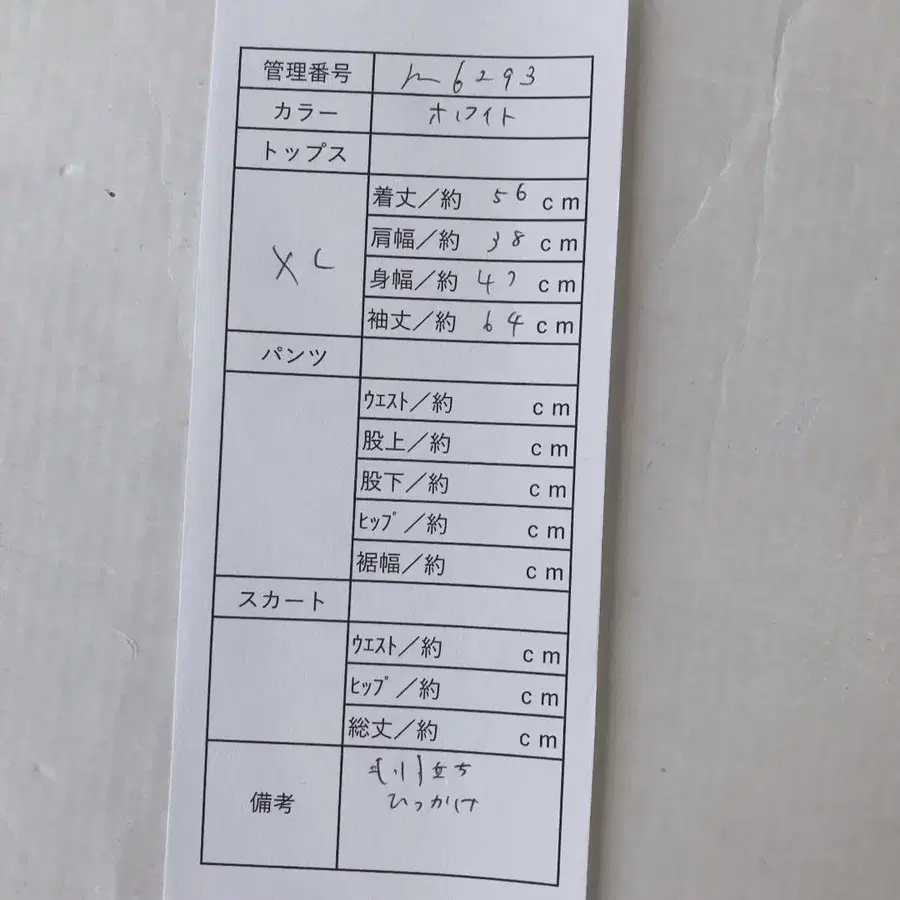 管理番号 m6293
カラー ホワイト
トップス
XL
着丈／約 56 cm
肩幅／約 38 cm
身幅／約 47 cm
袖丈／約 64 cm
パンツ
ｳｴｽﾄ／約 cm
股上／約 cm
股下／約 cm
ﾋｯﾌﾟ／約 cm
裾幅／約 cm
スカート
ｳｴｽﾄ／約 cm
ﾋｯﾌﾟ／約 cm
総丈／約 cm
備考
毛羽立ち
ひっかけ